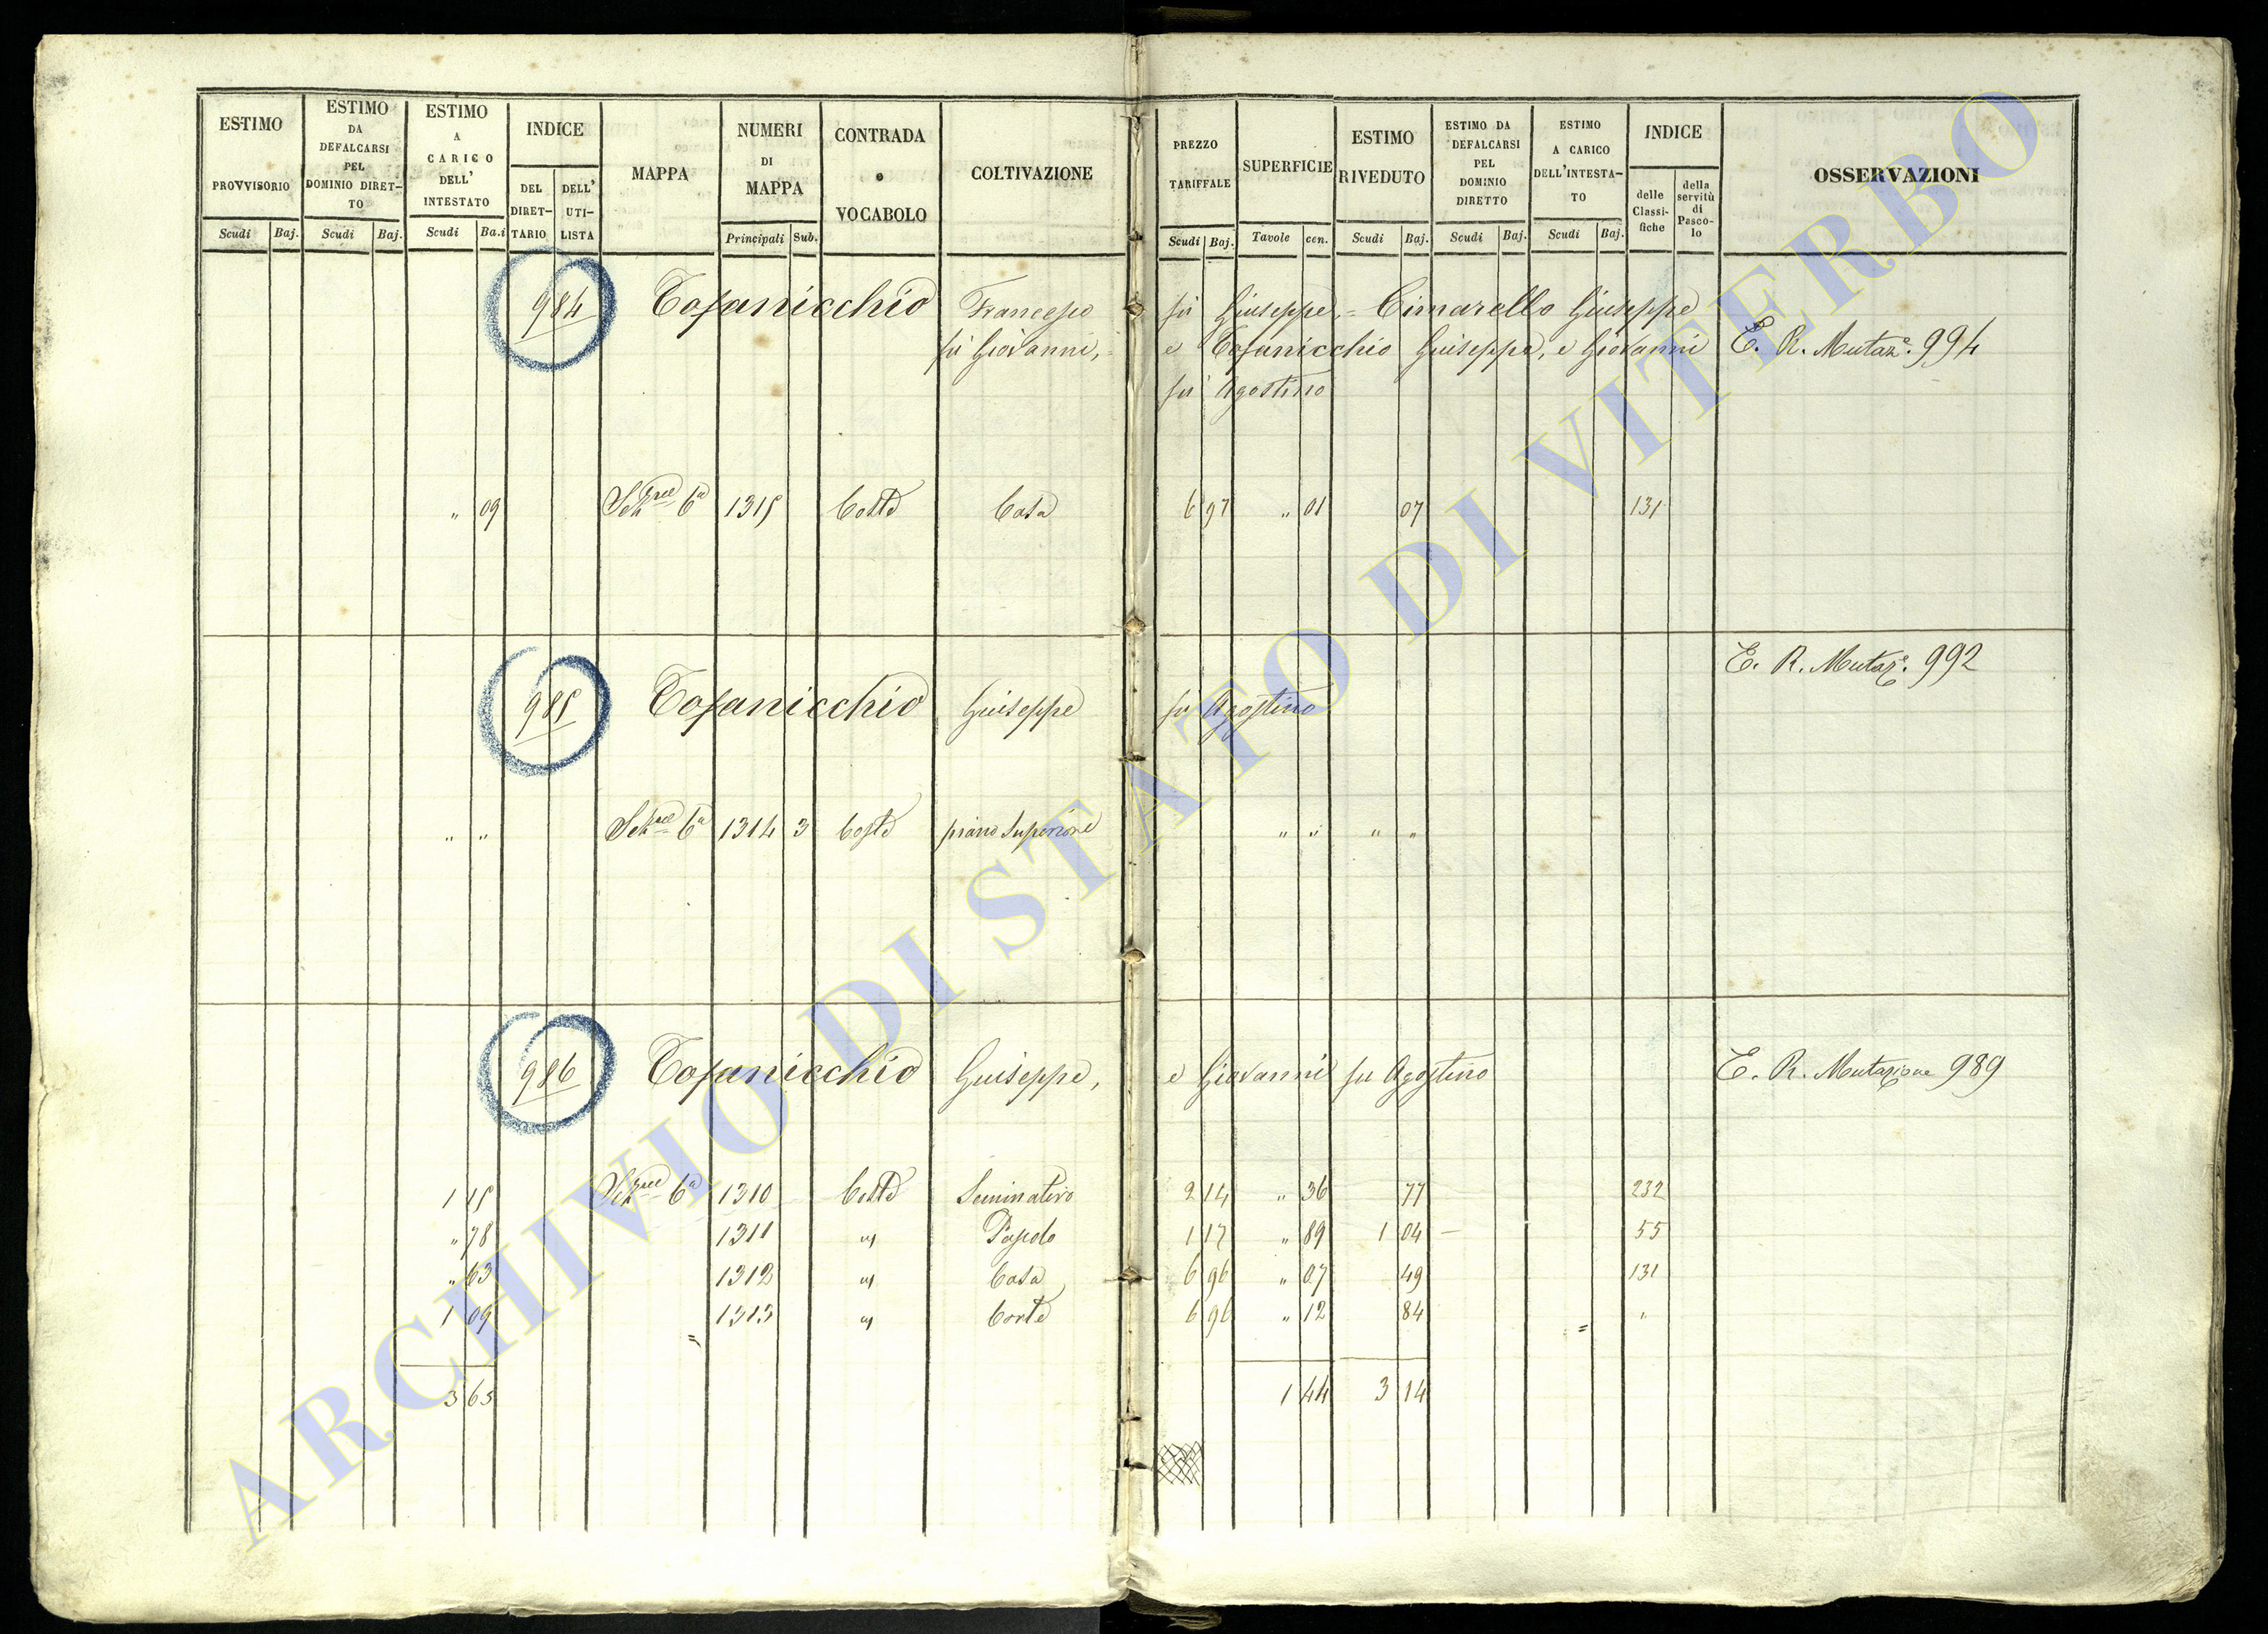 ESTIMO PROVVISORIO
Scudi Baj.
ESTIMO DA DEFALCARSI PEL DOMINIO DIRET-TO
Scudi Baj.
ESTIMO A CARICO DELL' INTESTATO
Scudi Ba.i
INDICE
DEL DIRET-TARIO
DELL' UTI-LISTA
MAPPA
NUMERI DI MAPPA
Principali Sub.
CONTRADA o VOCABOLO
COLTIVAZIONE
PREZZO TARIFFALE
Scudi Baj.
SUPERFICIE
Tavole cen.
ESTIMO RIVEDUTO
Scudi Baj.
ESTIMO DA DEFALCARSI PEL DOMINIO DIRETTO
Scudi Baj.
ESTIMO A CARICO DELL'INTESTA-TO
Scudi Baj.
INDICE
delle Classi-fiche
della servitù di Pasco-lo
OSSERVAZIONI
984 Tofanicchio Francesco fu Giuseppe, = Cimarello Giuseppe
fu Giovanni, = e Tofanicchio Giuseppe, e Giovanni E. R. Mutaz.e 994
fu Agostino
" 09 6a 1315 Coste Casa 6 97 " 01 07 131
E. R. Mutaz.e 992
985 Tofanicchio Giuseppe fu Agostino
" " 6a 1314 3 Coste piano Superiore " " " "
986 Tofanicchio Giuseppe, e Giovanni fu Agostino E. R. Mutazione 989
1 15 6a 1310 Coste Seminativo 2 14 " 36 77 232
" 78 1311 " Pascolo 1 17 " 89 1 04 — 55
" 63 1312 " Casa 6 96 " 07 49 131
1 09 1313 " Corte 6 96 " 12 84 "
= =
3 65 1 44 3 14
ARCHIVIO DI STATO DI VITERBO